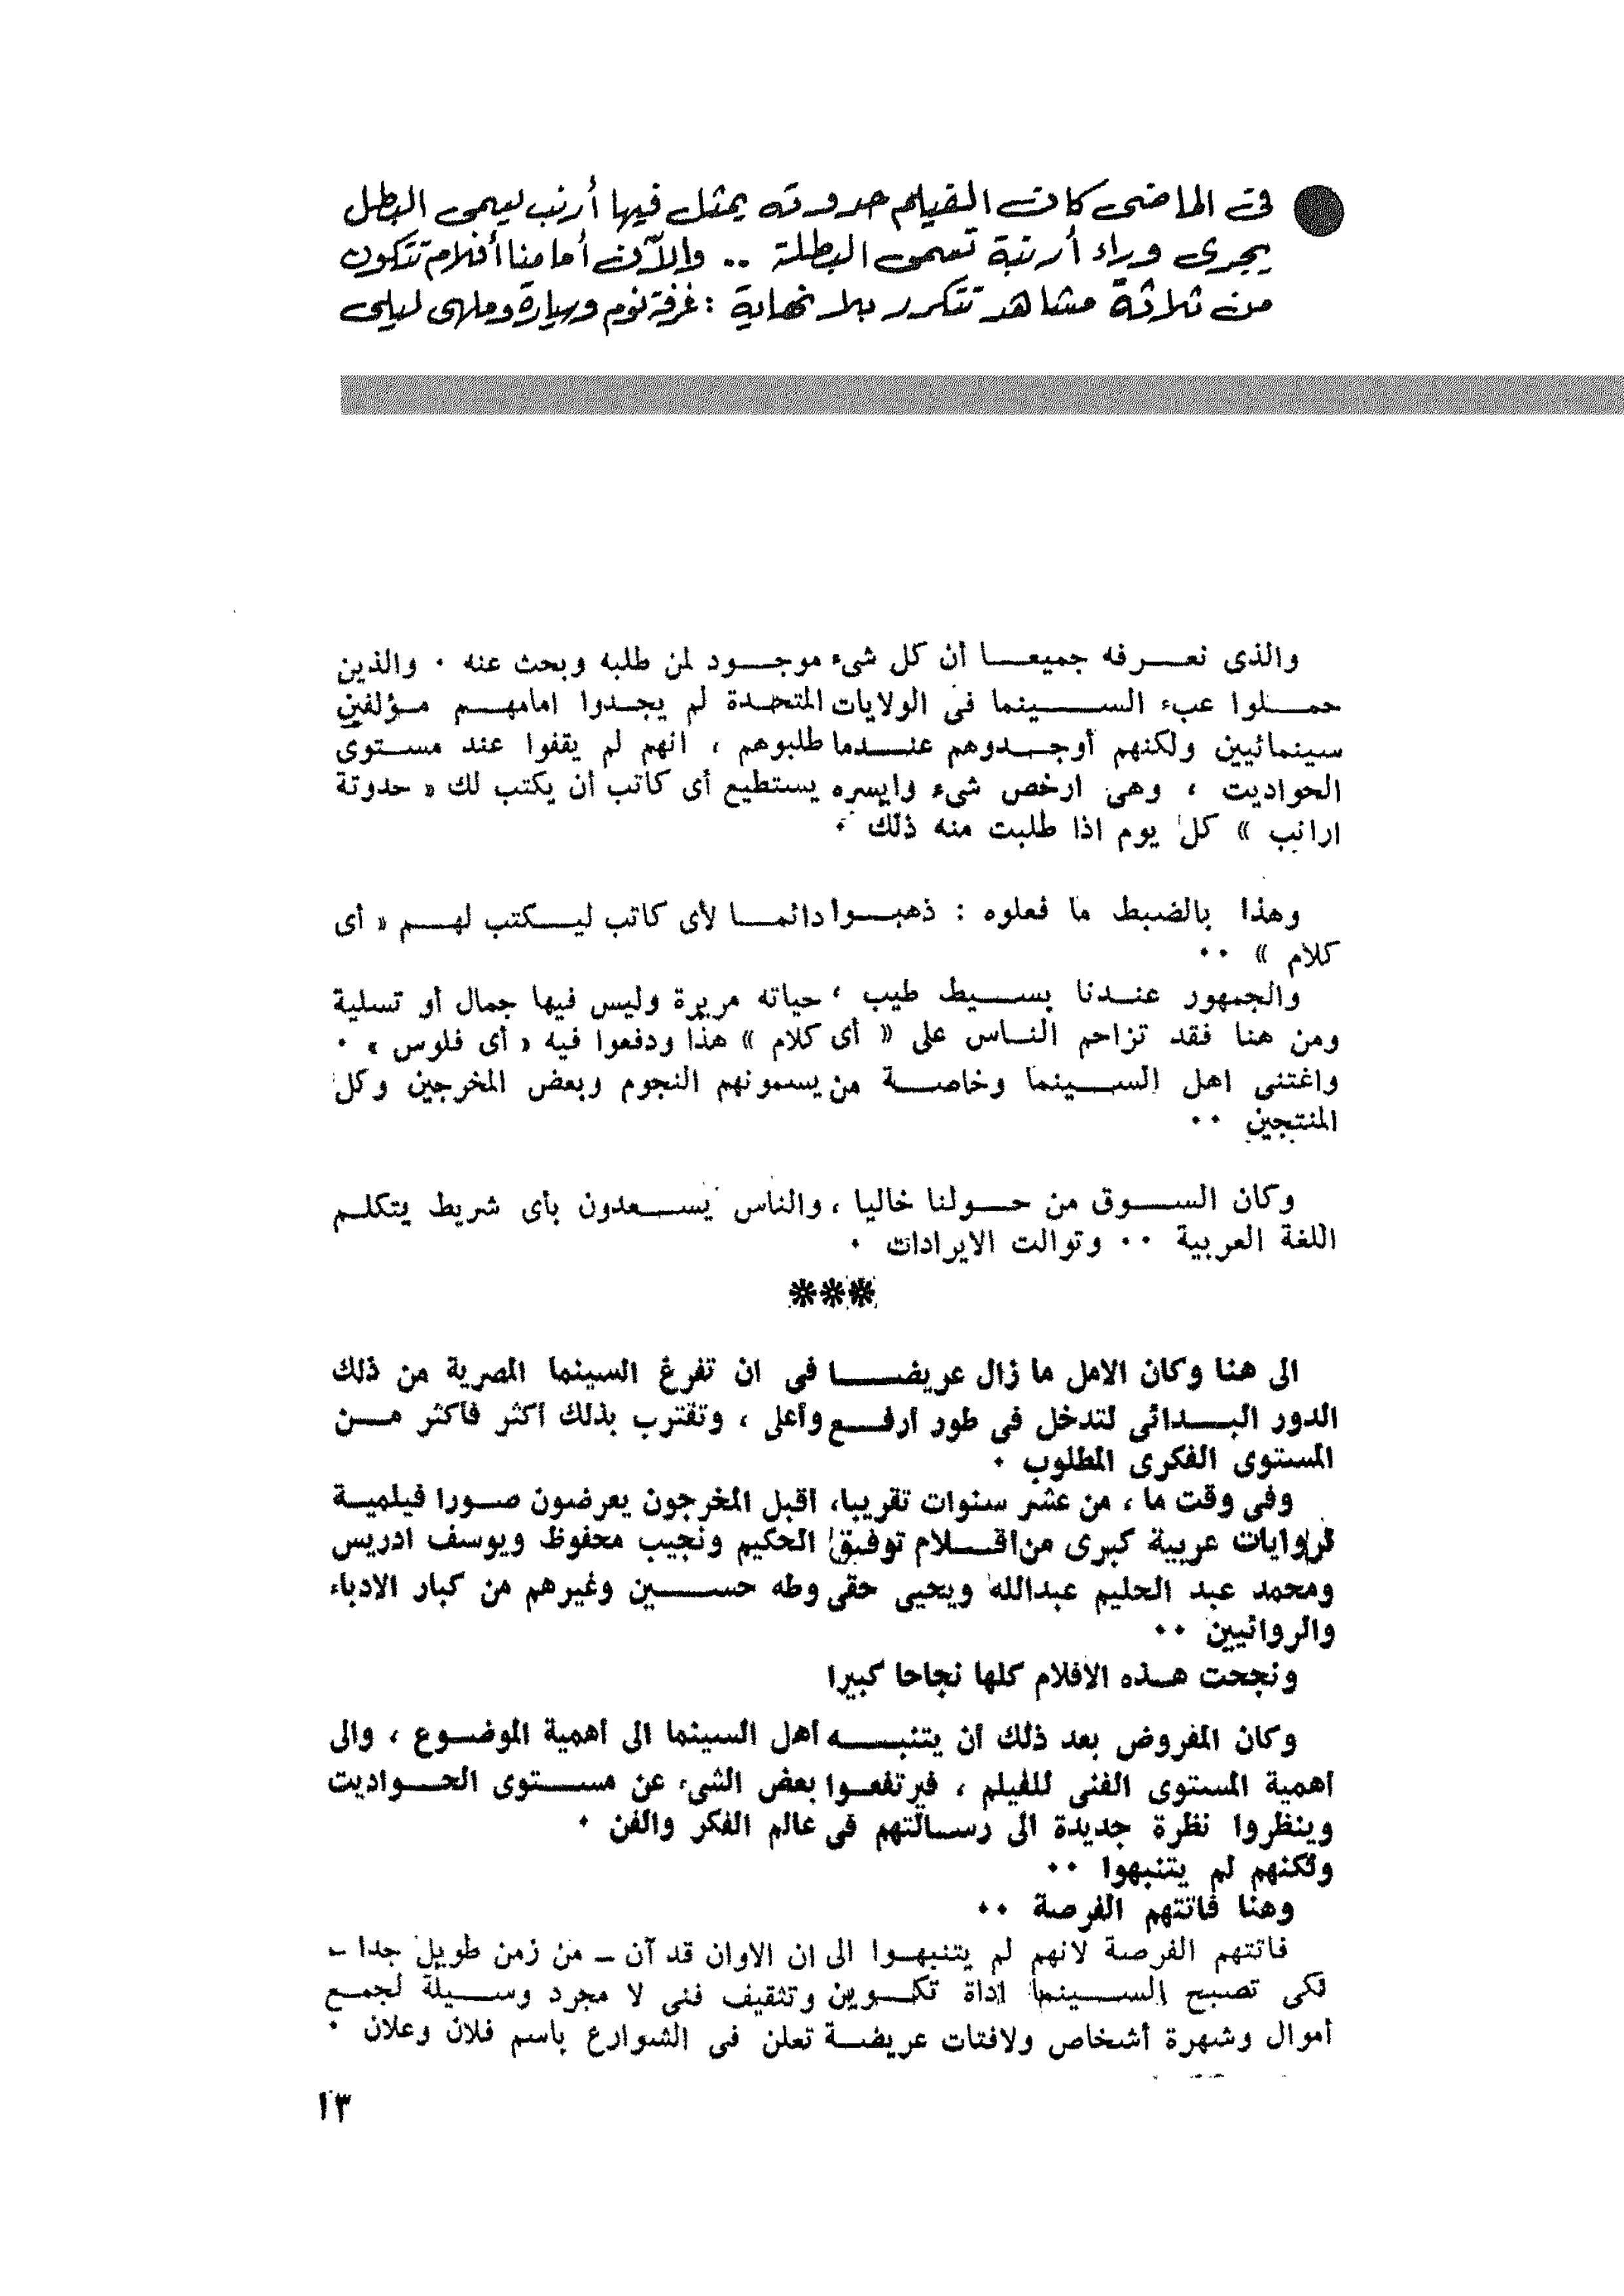 فى الماضى كان الفيلم حدوته يمثل فيها أرنب يسمى البطل
يجرى وراء أرنبة تسمى البطلة .. والآن أمامنا أفلام تتكون
من ثلاثة مشاهد تتكرر بلا نهاية : غرفة نوم وسيارة وملهى ليلى
والذى نعرفه جميعا أن كل شىء موجود لمن طلبه وبحث عنه . والذين
حملوا عبء السينما فى الولايات المتحدة لم يجدوا امامهم مؤلفين
سينمائيين ولكنهم أوجدوهم عندما طلبوهم ، انهم لم يقفوا عند مستوى
الحواديت ، وهى ارخص شىء وايسره يستطيع أى كاتب أن يكتب لك « حدوتة
ارانب » كل يوم اذا طلبت منه ذلك .
وهذا بالضبط ما فعلوه : ذهبوا دائما لأى كاتب ليكتب لهم « أى
كلام » ..
والجمهور عندنا بسيط طيب ، حياته مريرة وليس فيها جمال أو تسلية
ومن هنا فقد تزاحم الناس على « أى كلام » هذا ودفعوا فيه « أى فلوس » .
واغتنى اهل السينما وخاصة من يسمونهم النجوم وبعض المخرجين وكل
المنتجين ..
وكان السوق من حولنا خاليا ، والناس يسعدون بأى شريط يتكلم
اللغة العربية .. وتوالت الايرادات .
***
الى هنا وكان الامل ما زال عريضا فى ان تفرغ السينما المصرية من ذلك
الدور البدائى لتدخل فى طور أرفع وأعلى ، وتقترب بذلك أكثر فأكثر من
المستوى الفكرى المطلوب .
وفى وقت ما ، من عشر سنوات تقريبا، أقبل المخرجون يعرضون صورا فيلمية
لروايات عربية كبرى من اقلام توفيق الحكيم ونجيب محفوظ ويوسف ادريس
ومحمد عبد الحليم عبدالله ويحيى حقى وطه حسين وغيرهم من كبار الادباء
والروائيين ..
ونجحت هذه الافلام كلها نجاحا كبيرا
وكان المفروض بعد ذلك أن يتنبه أهل السينما الى أهمية الموضوع ، والى
أهمية المستوى الفنى للفيلم ، فيرتفعوا بعض الشىء عن مستوى الحواديت
وينظروا نظرة جديدة الى رسالتهم فى عالم الفكر والفن .
ولكنهم لم يتنبهوا ..
وهنا فاتتهم الفرصة ..
فاتتهم الفرصة لانهم لم يتنبهوا الى ان الاوان قد آن – من زمن طويل جدا –
لكى تصبح السينما اداة تكوين وتثقيف فنى لا مجرد وسيلة لجمع
أموال وشهرة أشخاص ولافتات عريضة تعلن فى الشوارع باسم فلان وعلان .
١٣